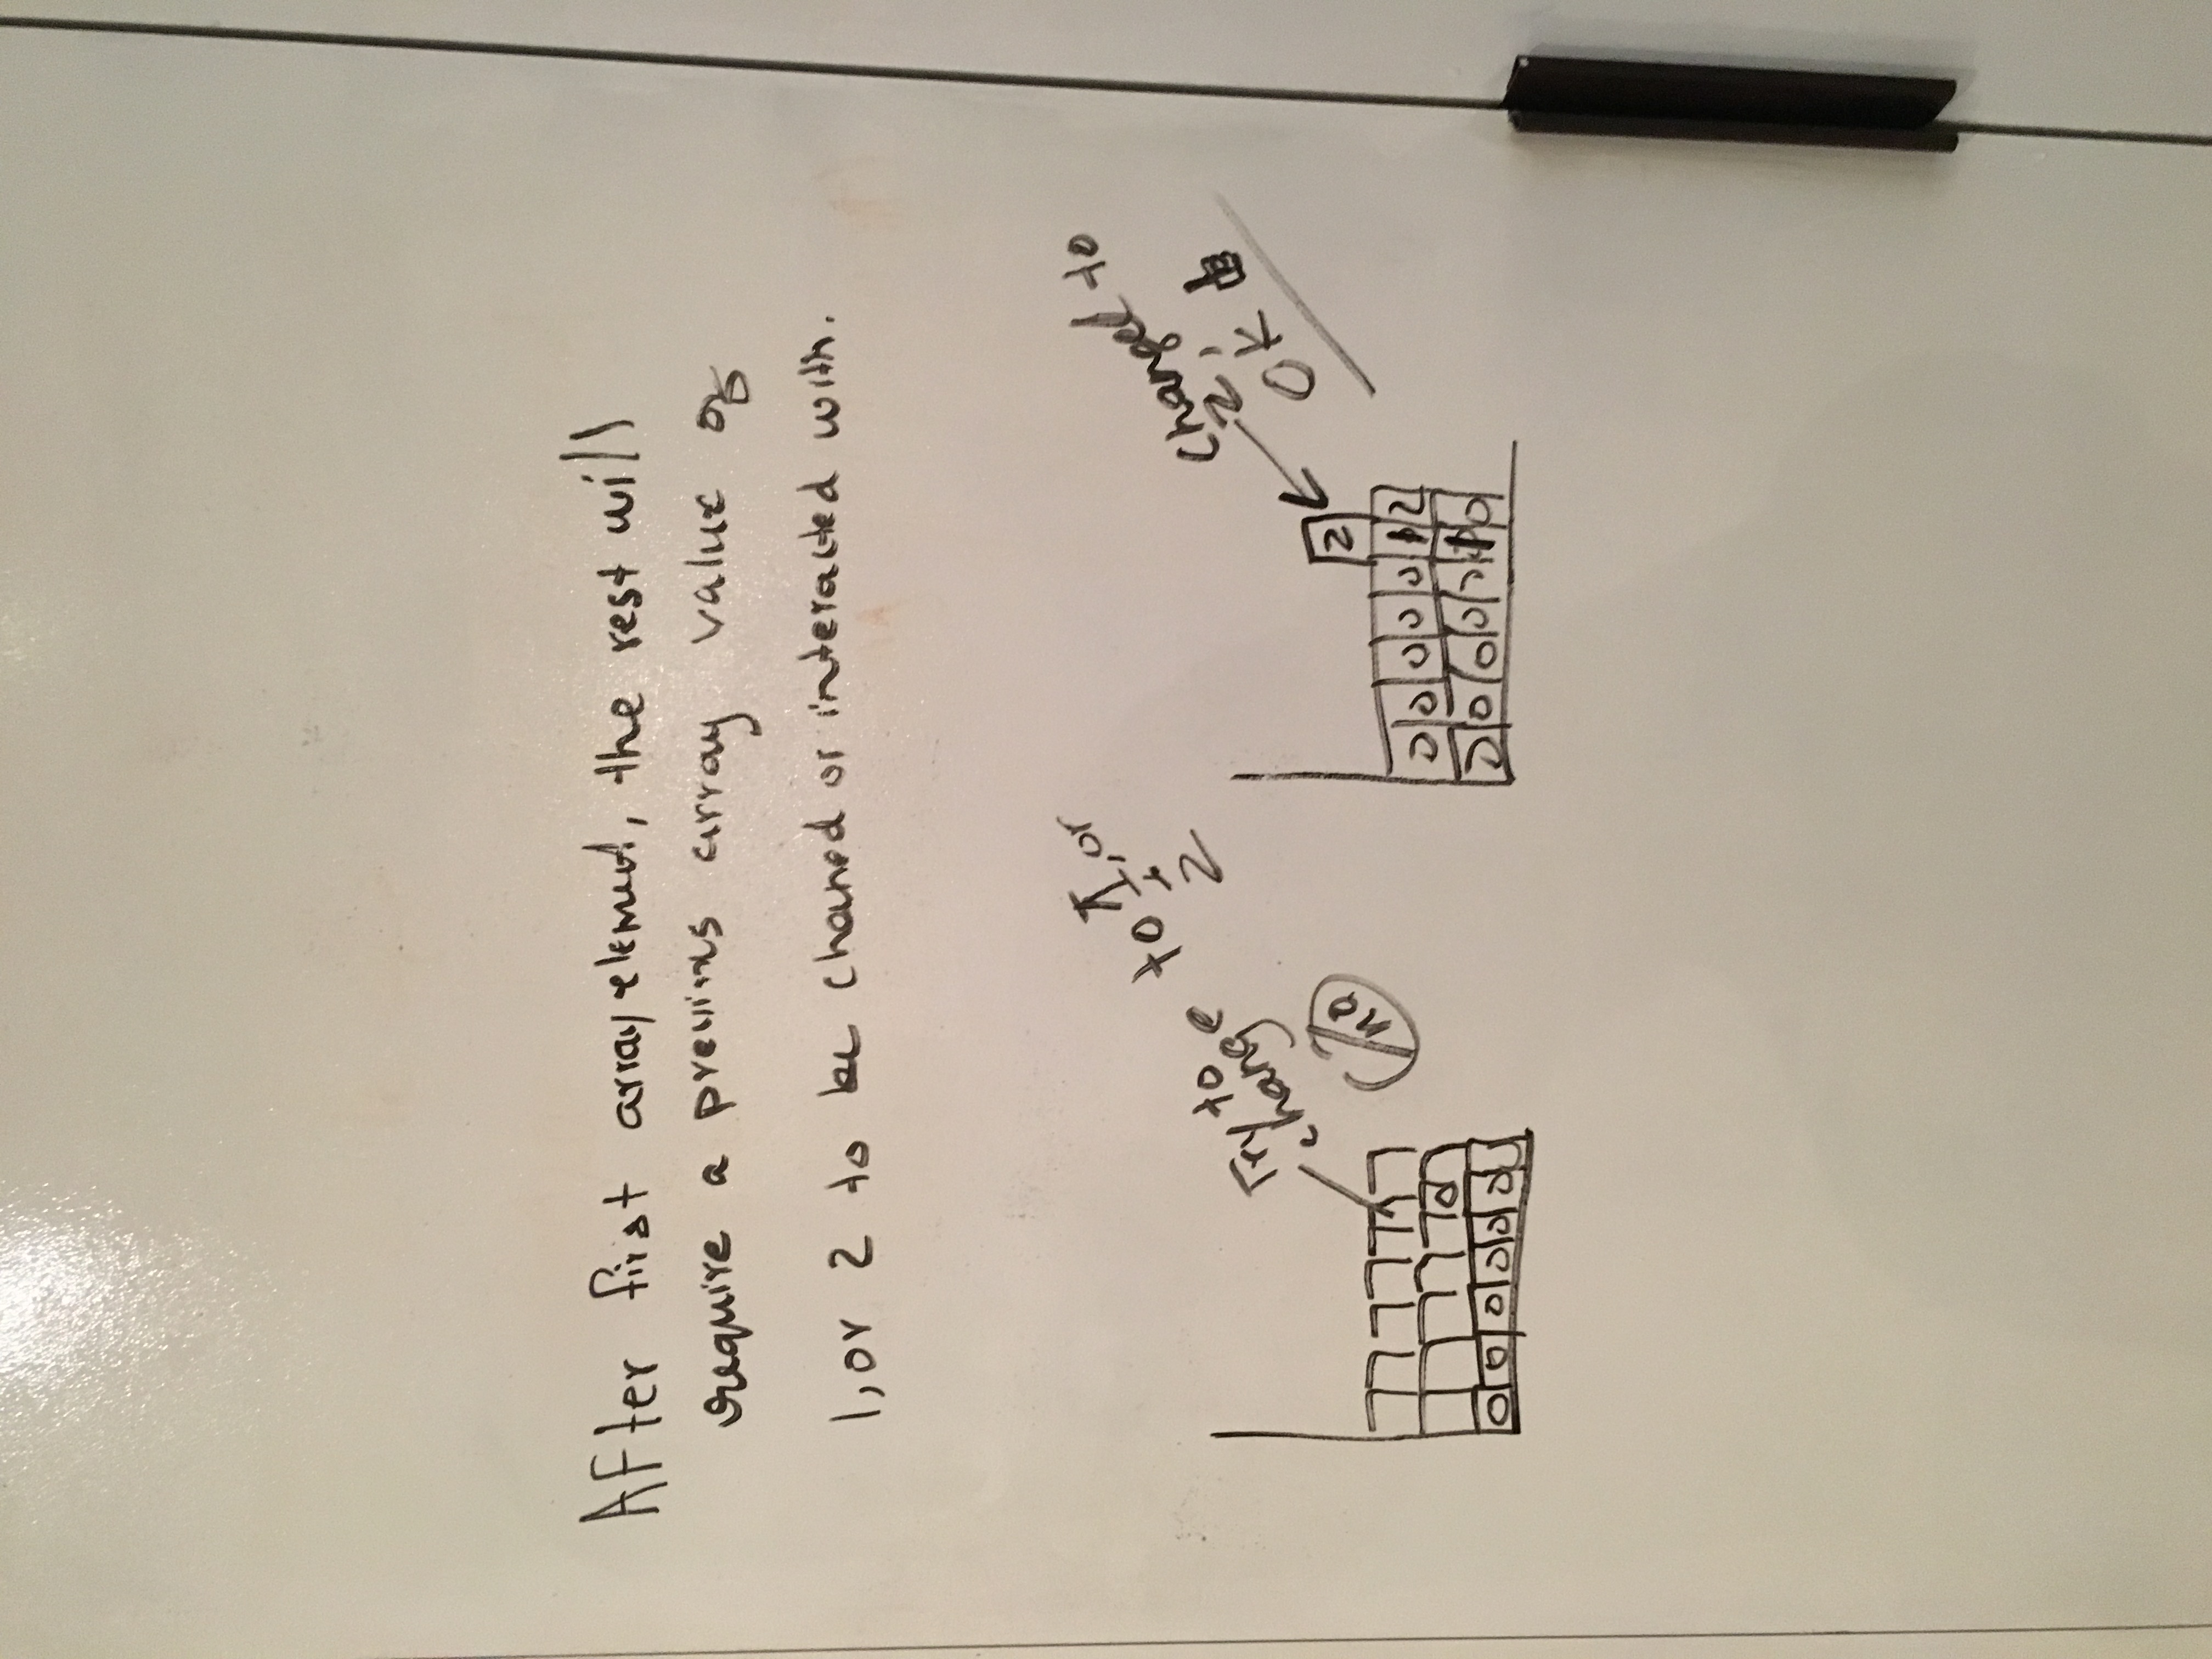 After first array element, the rest will
require a previous array value of
1, or 2 to be chaned or interacted with.
Try to
change to 1, or
2
no
0 0 0 0 0 0
0
changed to
2,
OK
2
0 0 0 0 0 1 2
0 0 0 0 0 1 0